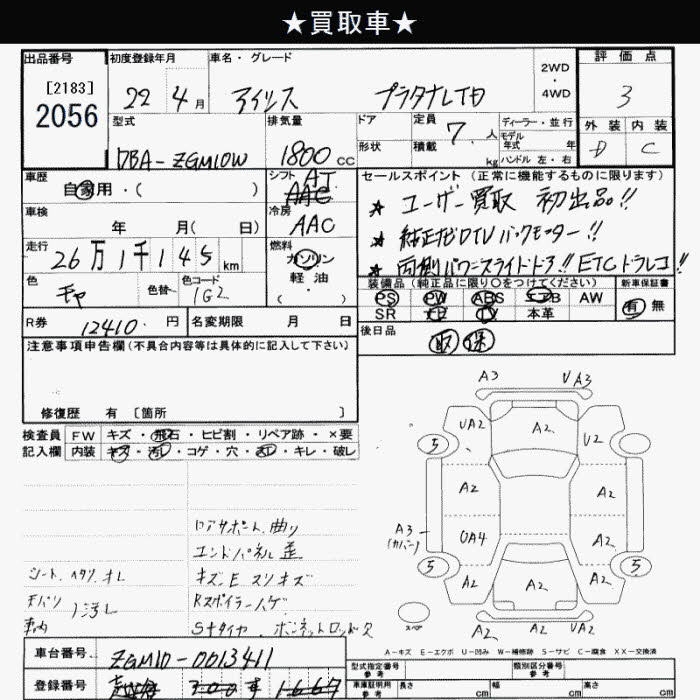 ★買取車★
出品番号 初度登録年月 車名・グレード 2WD・4WD 評価点
[2183]
2056 22年4月 アイシス プラタナLTD 3
型式 排気量 ドア 定員 7人 ディーラー・並行 外装 内装
形状 積載 kg モデル年式 年 D C
DBA-ZGM10W 1800cc ハンドル 左・右
車歴 自家用・( ) シフト AT セールスポイント (正常に機能するものに限ります)
車検 年 月( 日) 冷房 AAC ★ ユーザー買取 初出品!!
★ 純正ナビDTVバックモニター!!
走行 26万1千145km 燃料 ガソリン 軽油・( ) ★ 両側パワースライドドア!! ETCドラレコ!!
色 色替 色コード 1G2 装備品(純正品に限り○をつけてください) 新車保証書
PS PW ABS エアB AW 有 無
SR ナビ TV 本革
R券 12410円 名変期限 月 日 後日品 取 保
注意事項申告欄(不具合内容等は具体的に記入して下さい)
修復歴 有 [箇所 ]
検査員記入欄 FW キズ・飛石・ヒビ割・リペア跡・×要
内装 キズ・汚レ・コゲ・穴・キレ・破レ
A3 VA3
UA2 A2 U2
5
A2 A2
A3 OA4 A2
(カバー)
5 5
A2 A2 A2
スペア A2 U2 A2
ロアサポート曲り
エンドパネル歪
シート ヘタリ オレ キズ、E スリキズ
天バリ 汚レ Rスポイラーハゲ
車内 Sタイヤ、ボンネットロッド欠
A-キズ E-エクボ U-凹み W-補修跡 S-サビ C-腐食 XX-交換済
車台番号 ZGM10-0013411 型式指定番号 参考 類別区分番号 参考
登録番号 300 1667 車庫証明用 参考 長さ cm 幅 cm 高さ cm